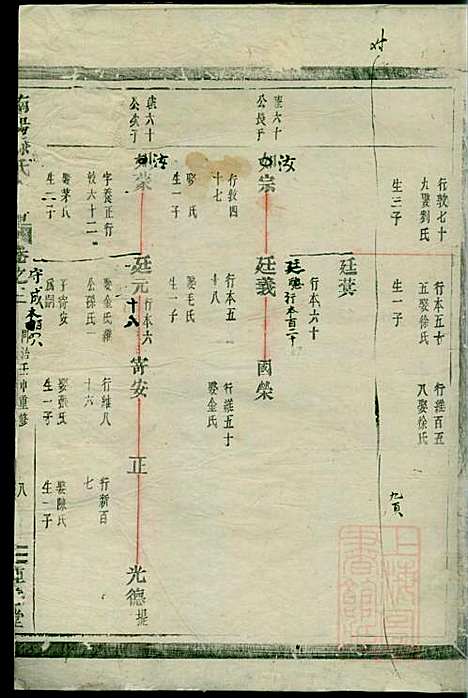 行敦七十
九娶劉氏
生三子
廷賓
行本五十
五娶徐氏
生一子
行維百五
八娶徐氏
九頁
崇六十
公長子
汝宗
行敦四
十七
娶 氏
生一子
廷義
廷聰行本百二十
行本六十
行本五
十八
娶毛氏
生一子
國榮
行維五十
娶金氏
崇六十
公幼子
汝榮
字養正行
敦六十二
娶茅氏
生二子
廷元
行本六
十八
娶金氏繼
公孫氏一
子寄安
為嗣
寄安
行維八
十六
娶張氏
生一子
正
行新百
七
娶陳氏
生一子
光德
堤
南陽
氏
卷之二
守成
同治壬申重修
八
堂